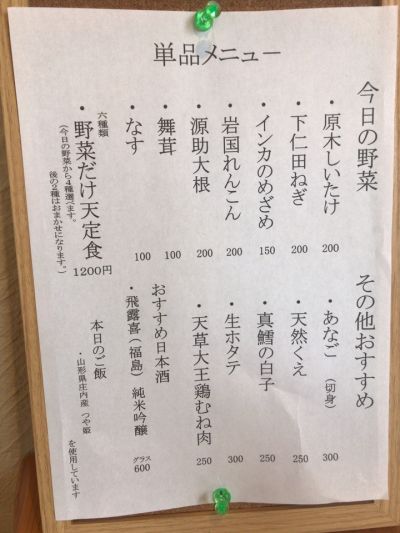 単品メニュー
今日の野菜
・原木しいたけ 200
・下仁田ねぎ 200
・インカのめざめ 150
・岩国れんこん 200
・源助大根 200
・舞茸 100
・なす 100
六種類
・野菜だけ天定食 1200円
（今日の野菜から4種選べます。
後の2種はおまかせになります。）
その他おすすめ
・あなご（切身） 300
・天然くえ 250
・真鱈の白子 250
・生ホタテ 300
・天草大王鶏むね肉 250
おすすめ日本酒
・飛露喜（福島）純米吟醸 グラス 600
本日のご飯
・山形県庄内産 つや姫
を使用しています